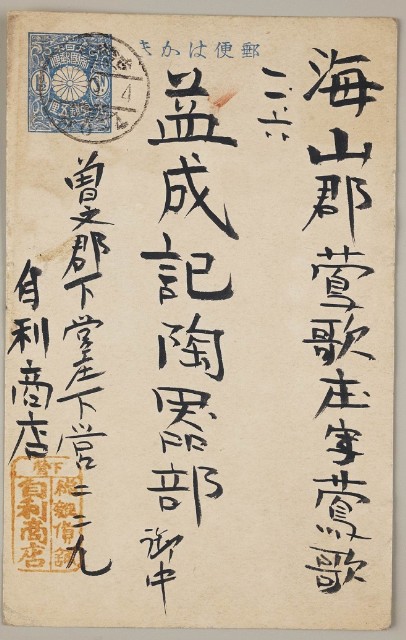 郵便はかき
海山郡鶯歌庄字鶯歌
二、六
益成記陶器部 御中
曽文郡下営庄下営二二九
自利商店
下營
自利商店